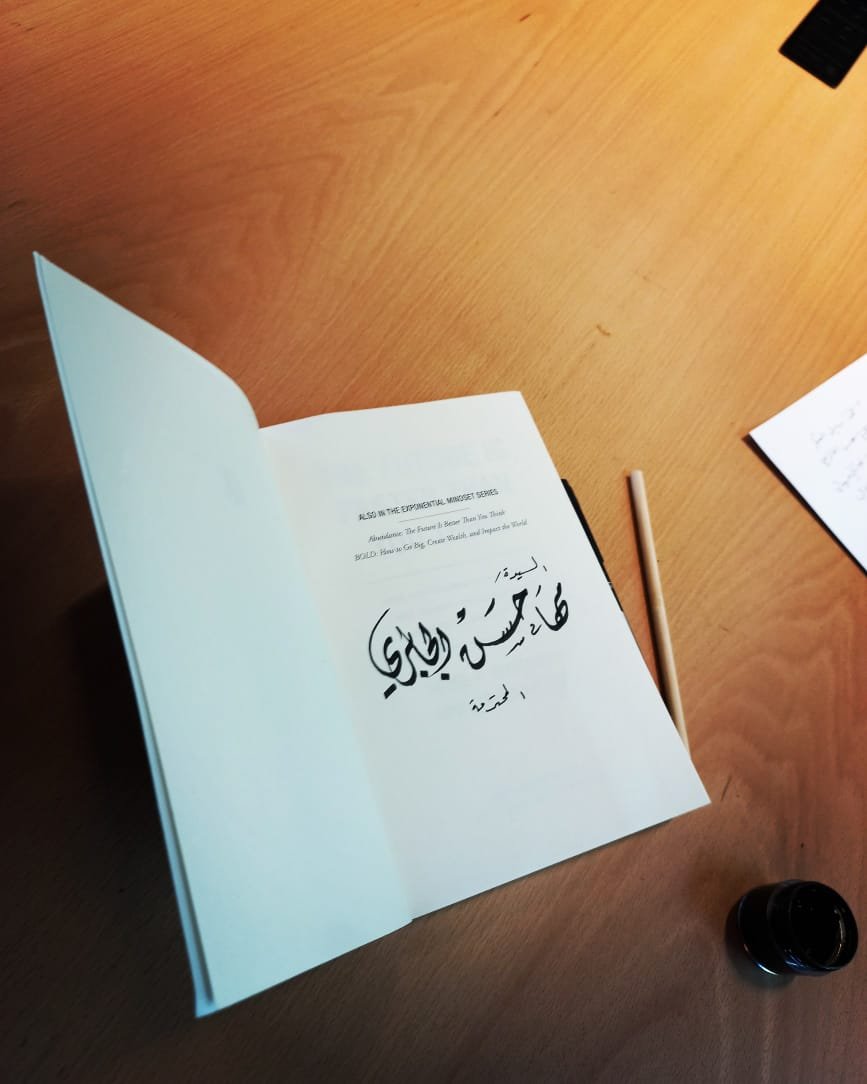 ALSO IN THE EXPONENTIAL MINDSET SERIES
Abundance: The Future Is Better Than You Think
BOLD: How to Go Big, Create Wealth, and Impact the World
السيدة
مهاء حسن الجابري
المحترمة